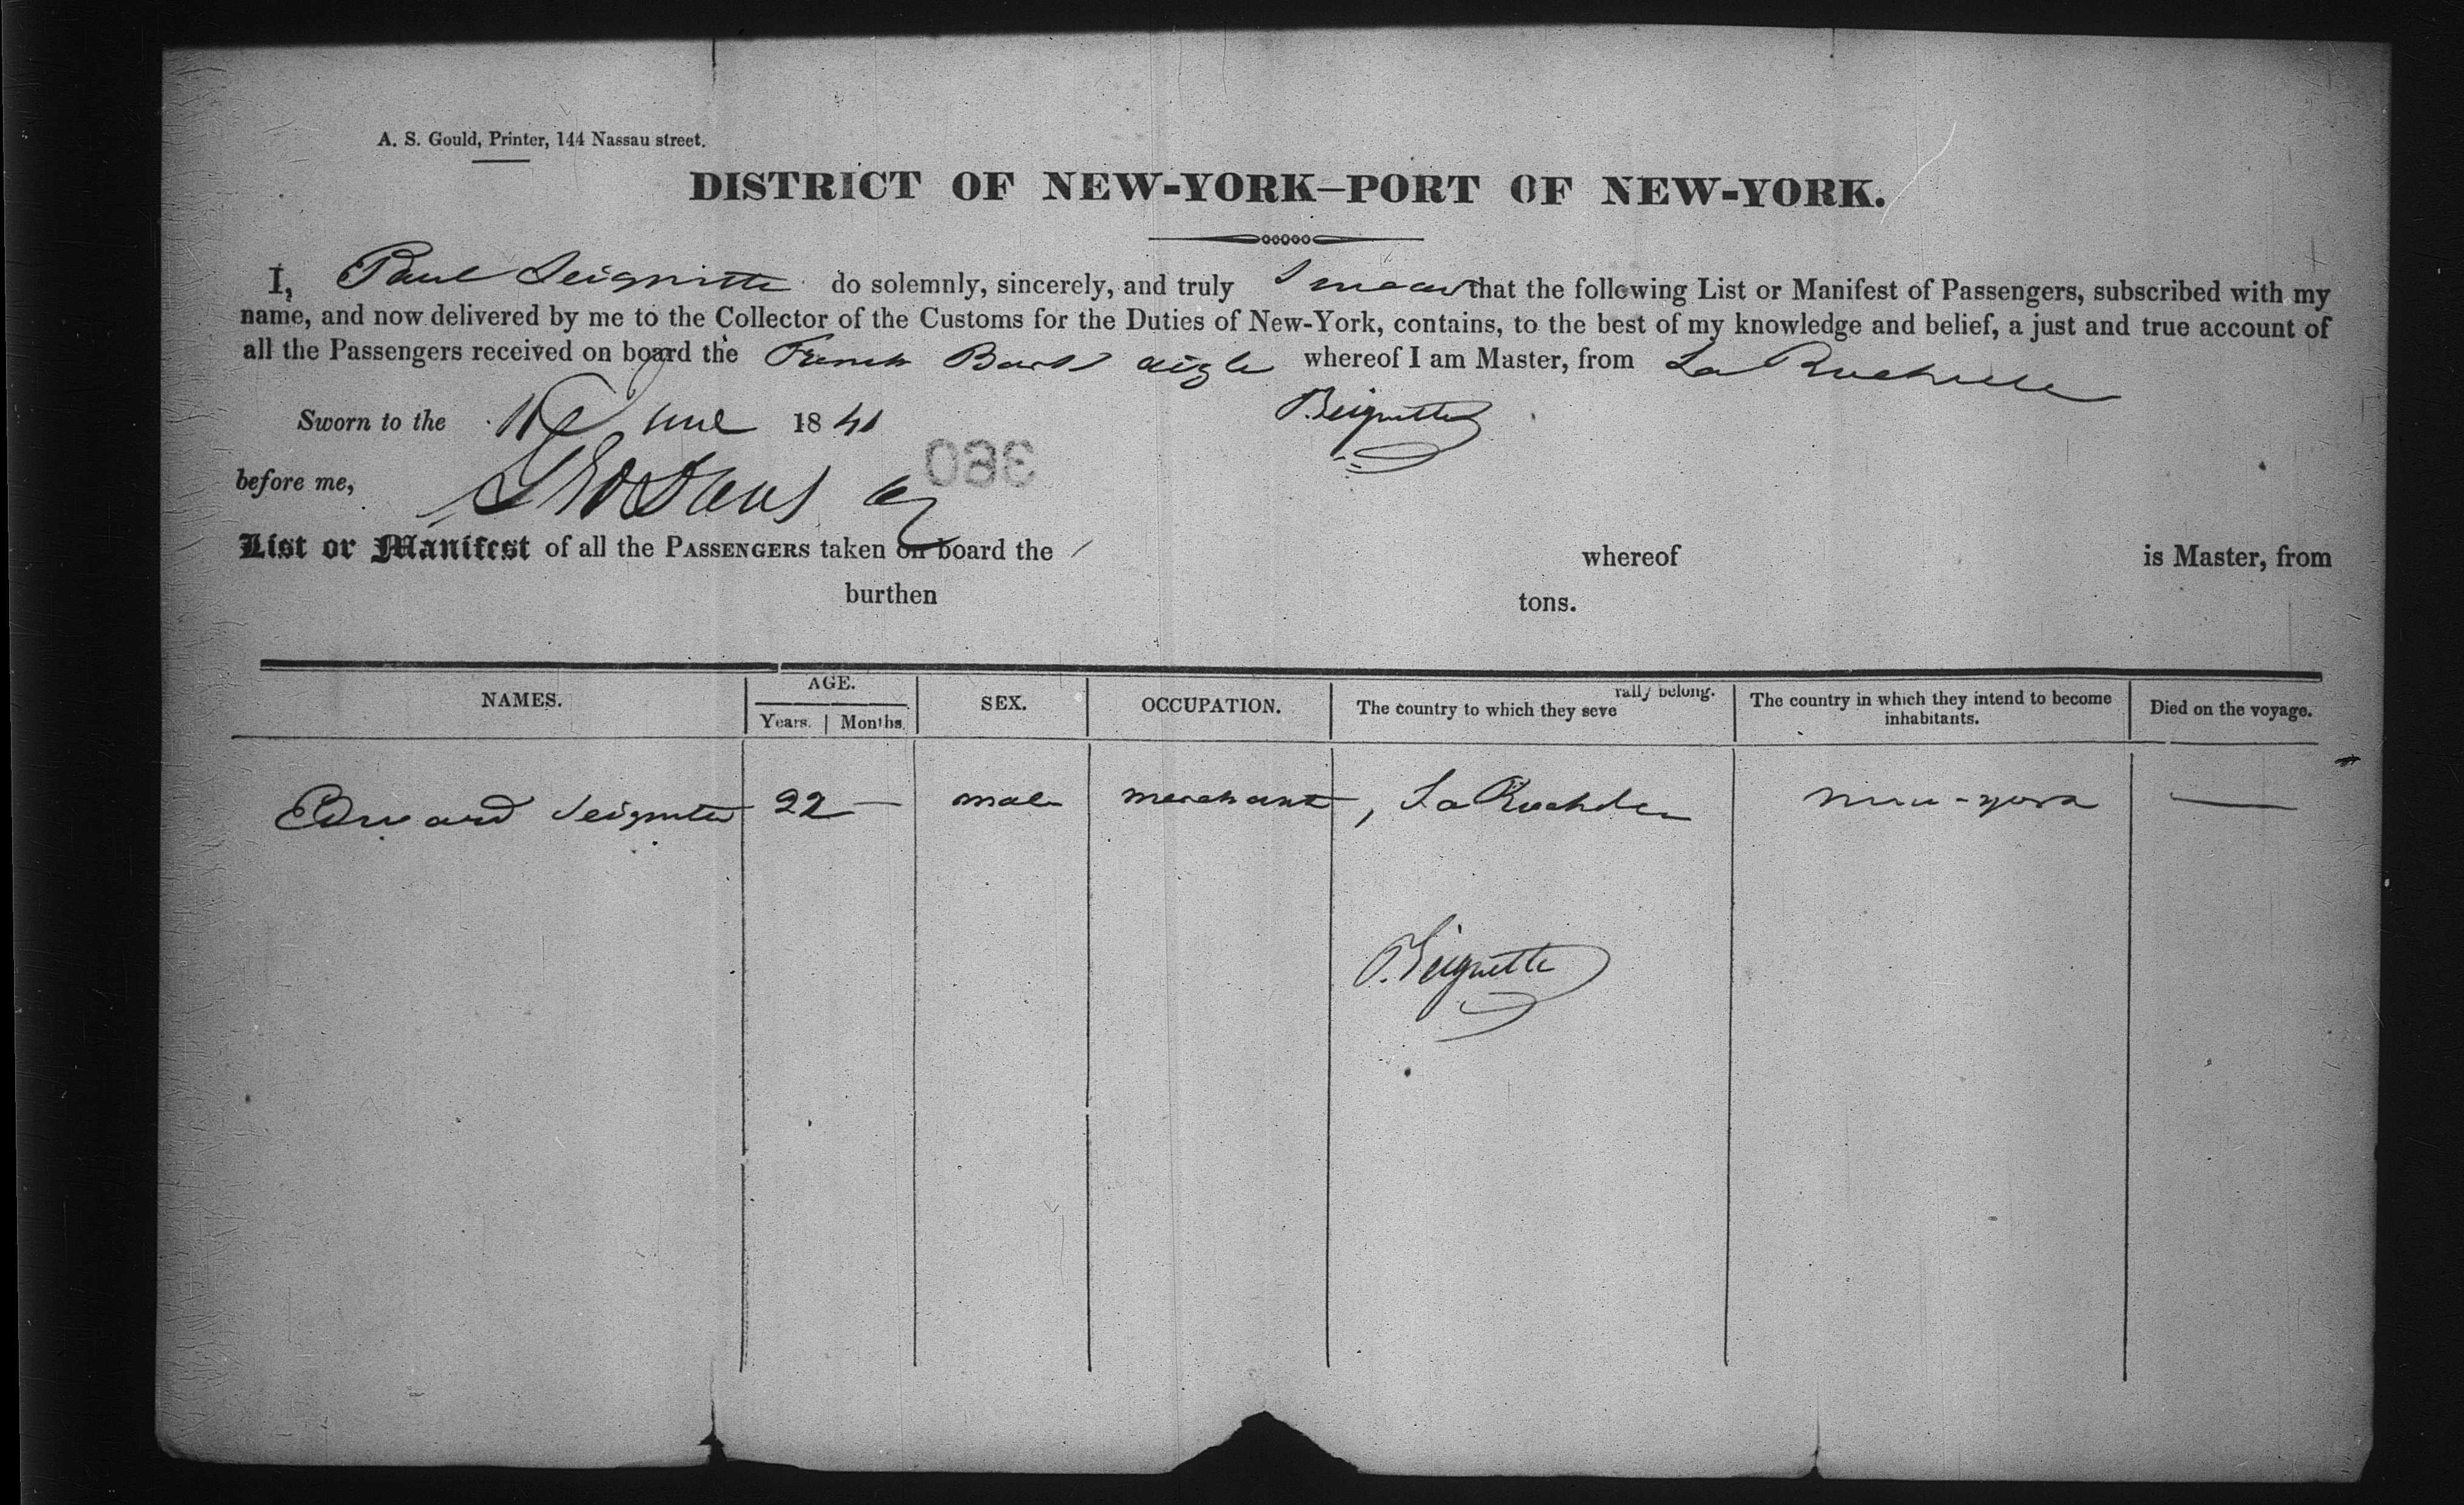 A. S. Gould, Printer, 144 Nassau street.
DISTRICT OF NEW-YORK—PORT OF NEW-YORK.
I, Paul Seignette do solemnly, sincerely, and truly swear that the following List or Manifest of Passengers, subscribed with my
name, and now delivered by me to the Collector of the Customs for the Duties of New-York, contains, to the best of my knowledge and belief, a just and true account of
all the Passengers received on board the French Bark Aigle whereof I am Master, from La Rochelle
Sworn to the June 1841 P. Seignette
before me,
080
List or Manifest of all the PASSENGERS taken on board the whereof is Master, from
burthen tons.
NAMES. AGE. Years. Months. SEX. OCCUPATION. The country to which they severally belong. The country in which they intend to become inhabitants. Died on the voyage.
Edward Seignette 22 — male merchant, La Rochelle new-york —
P. Seignette